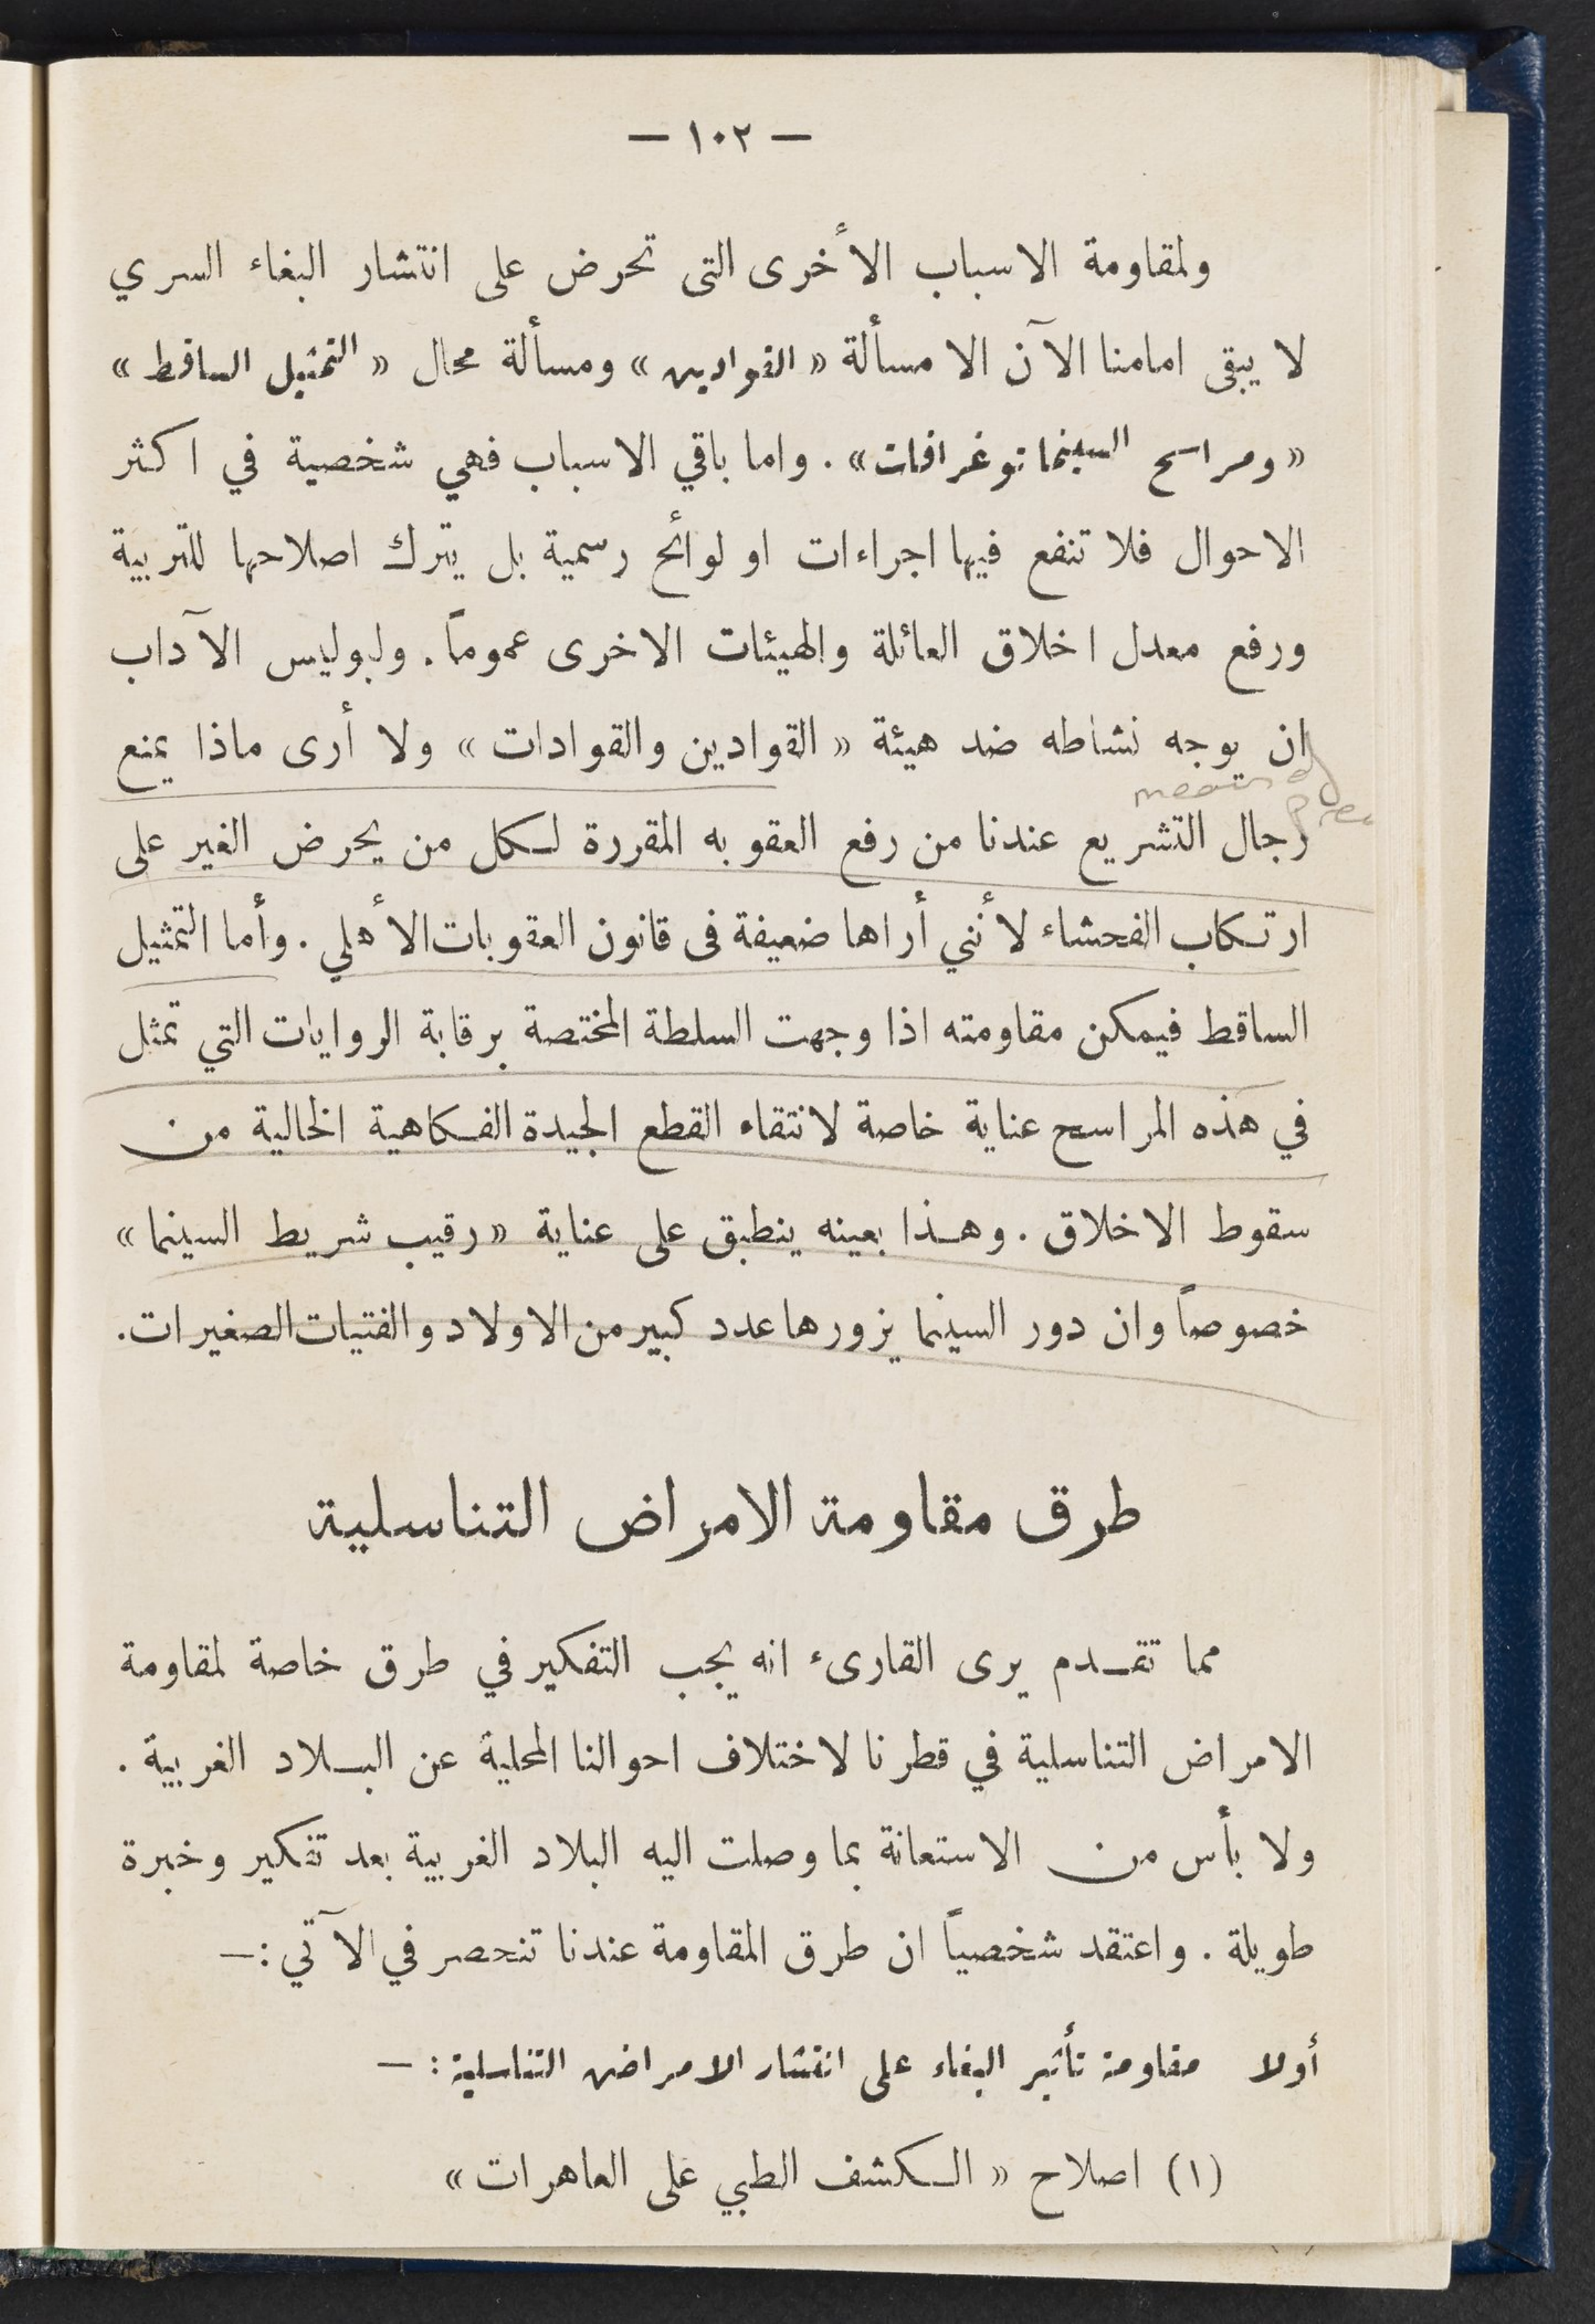 — ١٠٢ —
ولمقاومة الاسباب الأخرى التى تحرض على انتشار البغاء السري
لا يبقى امامنا الآن الا مسألة « القوادين » ومسألة محال « التمثيل الساقط »
« ومراسح السينماتوغرافات » . واما باقي الاسباب فهي شخصية في اكثر
الاحوال فلا تنفع فيها اجراءات او لوائح رسمية بل يترك اصلاحها للتربية
ورفع معدل اخلاق العائلة والهيئات الاخرى عموماً . ولبوليس الآداب
ان يوجه نشاطه ضد هيئة « القوادين والقوادات » ولا أرى ماذا يمنع
means of
رجال التشريع عندنا من رفع العقوبه المقررة لكل من يحرض الغير على
ارتكاب الفحشاء لأنني أراها ضعيفة فى قانون العقوبات الأهلي . وأما التمثيل
الساقط فيمكن مقاومته اذا وجهت السلطة المختصة برقابة الروايات التي تمثل
في هذه المراسح عناية خاصة لانتقاء القطع الجيدة الفكاهية الخالية من
سقوط الاخلاق . وهذا بعينه ينطبق على عناية « رقيب شريط السينما »
خصوصاً وان دور السينما يزورها عدد كبير من الاولاد والفتيات الصغيرات .
طرق مقاومة الامراض التناسلية
مما تقدم يرى القارىء انه يجب التفكير في طرق خاصة لمقاومة
الامراض التناسلية في قطرنا لاختلاف احوالنا المحلية عن البلاد الغربية .
ولا بأس من الاستعانة بما وصلت اليه البلاد الغربية بعد تفكير وخبرة
طويلة . واعتقد شخصياً ان طرق المقاومة عندنا تنحصر في الآتي :—
أولا مقاومة تأثير البغاء على انتشار الامراض التناسلية : —
(١) اصلاح « الكشف الطبي على العاهرات »